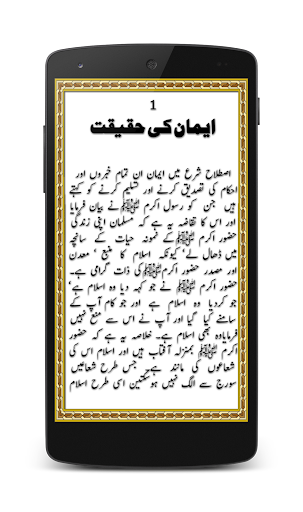 1
ایمان کی حقیقت
اصطلاح شرع میں ایمان ان تمام خبروں اور
احکام کی تصدیق کرنے اور تسلیم کرنے کو کہتے
ہیں جن کو رسول اکرم ﷺ نے بیان فرمایا
اور اس کا تقاضہ یہ ہے کہ مسلمان اپنی زندگی
حضور اکرم ﷺ کے نمونہ حیات کے سانچہ
میں ڈھال لے' کیونکہ اسلام کا منبع ' معدن
اور مصدر حضور اکرم ﷺ کی ذات گرامی ہے۔
حضور اکرم ﷺ نے جو کہہ دیا وہ اسلام ہے'
جو کردیا وہ اسلام ہے اور جو کام آپ کے
سامنے کیا گیا اور آپ نے اس سے منع نہیں
فرمایاوہ بھی اسلام ہے۔ خلاصہ یہ ہے کہ حضور
اکرم ﷺ بمنزلہ آفتاب ہیں اور اسلام اس کی
شعاعوں کی مانند ہے۔ جس طرح شعاعیں
سورج سے الگ نہیں ہوسکتیں اسی طرح اسلام